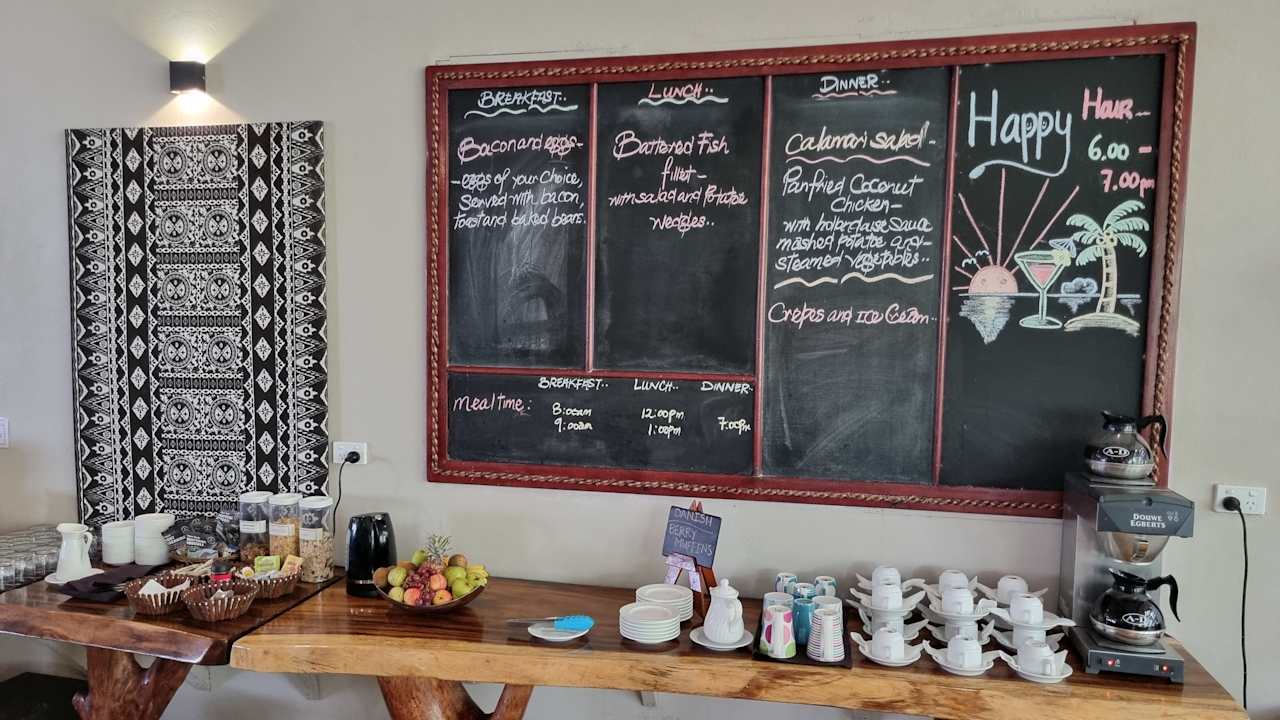 BREAKFAST..
Bacon and eggs-
-eggs of your Choice,
Served with bacon,
toast and baked beans.
LUNCH..
Battered Fish
fillet-
with salad and Potatoe
Wedges..
DINNER..
Calamari Salad-
Panfried Coconut
Chicken-
with holandaise Sauce
mashed potatoe and-
steamed vegetables..
Crepes and Ice Cream..
Happy Hour
6.00 -
7.00pm
BREAKFAST.. LUNCH.. DINNER..
Mealtime: 8:00am 12:00pm
9:00am 1:00pm 7:00pm
DANISH
BERRY
MUFFINS
A-D
DOUWE
EGBERTS
A-D